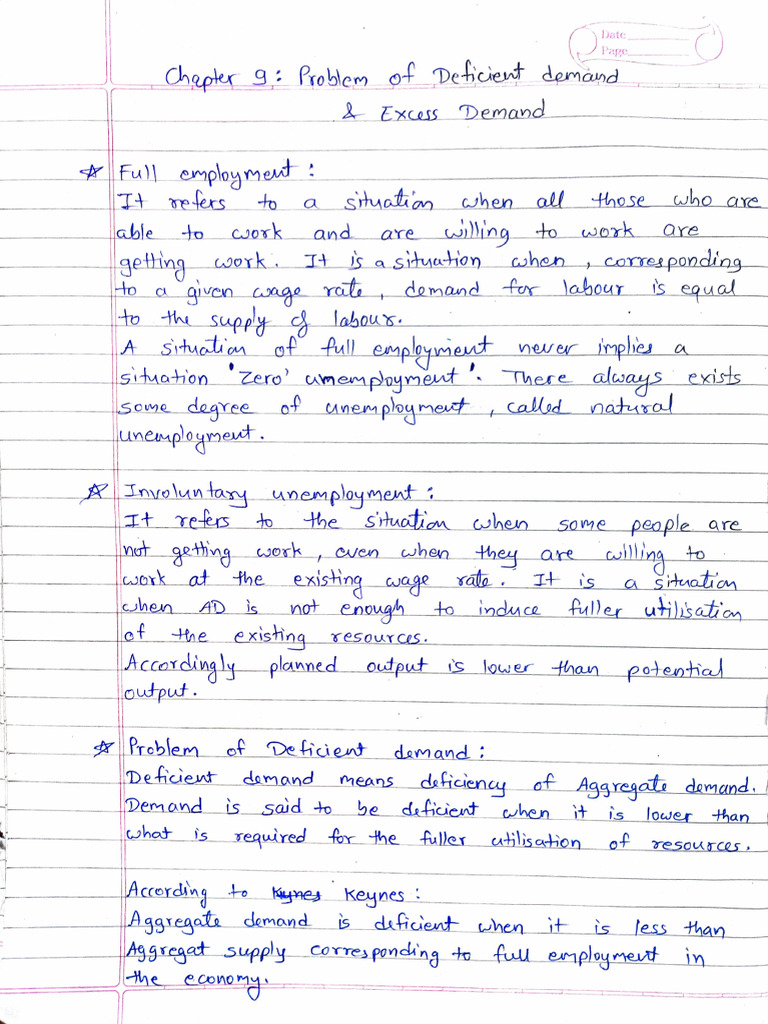 Date
Page
Chapter 9: Problem of Deficient demand
& Excess Demand
☆ Full employment :
It refers to a situation when all those who are
able to work and are willing to work are
getting work. It is a situation when, corresponding
to a given wage rate, demand for labour is equal
to the supply of labour.
A situation of full employment never implies a
situation 'Zero' unemployment'. There always exists
some degree of unemployment, called natural
unemployment.
☆ Involuntary unemployment :
It refers to the situation when some people are
not getting work, even when they are willing to
work at the existing wage rate. It is a situation
when AD is not enough to induce fuller utilisation
of the existing resources.
Accordingly planned output is lower than potential
output.
☆ Problem of Deficient demand :
Deficient demand means deficiency of Aggregate demand.
Demand is said to be deficient when it is lower than
what is required for the fuller utilisation of resources.
According to Keynes :
Aggregate demand is deficient when it is less than
Aggregat supply corresponding to full employment in
the economy.